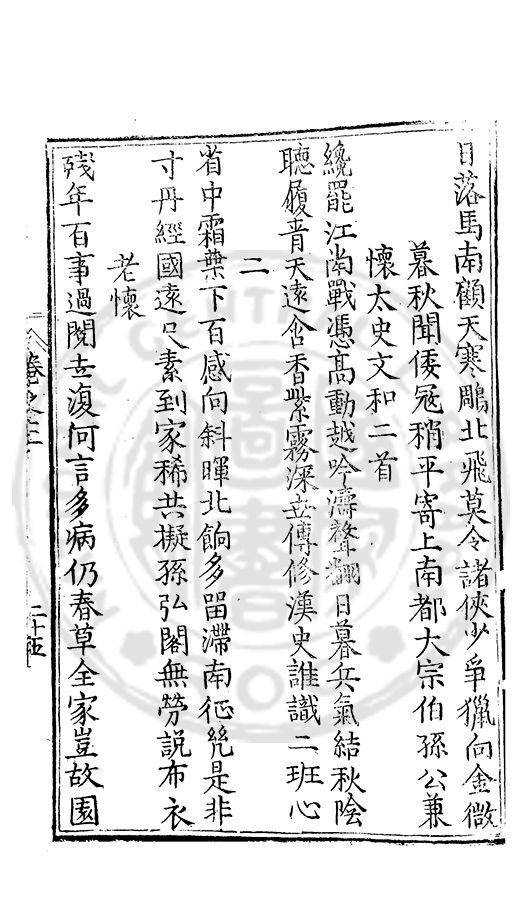 日落馬南顧天寒鵰北飛莫令諸俠少爭獵向金微
暮秋聞倭冦稍平寄上南都大宗伯孫公兼
懷太史文和二首
纔罷江淌戰憑高動越吟濤聲翻日暮兵氣結秋陰
聴履青天遠含香紫霧深立傅修漢史誰識二班心
二
省中霜葉下百感向斜暉北餉多畱滯南征笂是非
寸丹經國遠尺素到家稀共擬孫弘閣無勞説布衣
老懷
殘年百事過閱世復何言多病仍春草全家豈故園
二十五